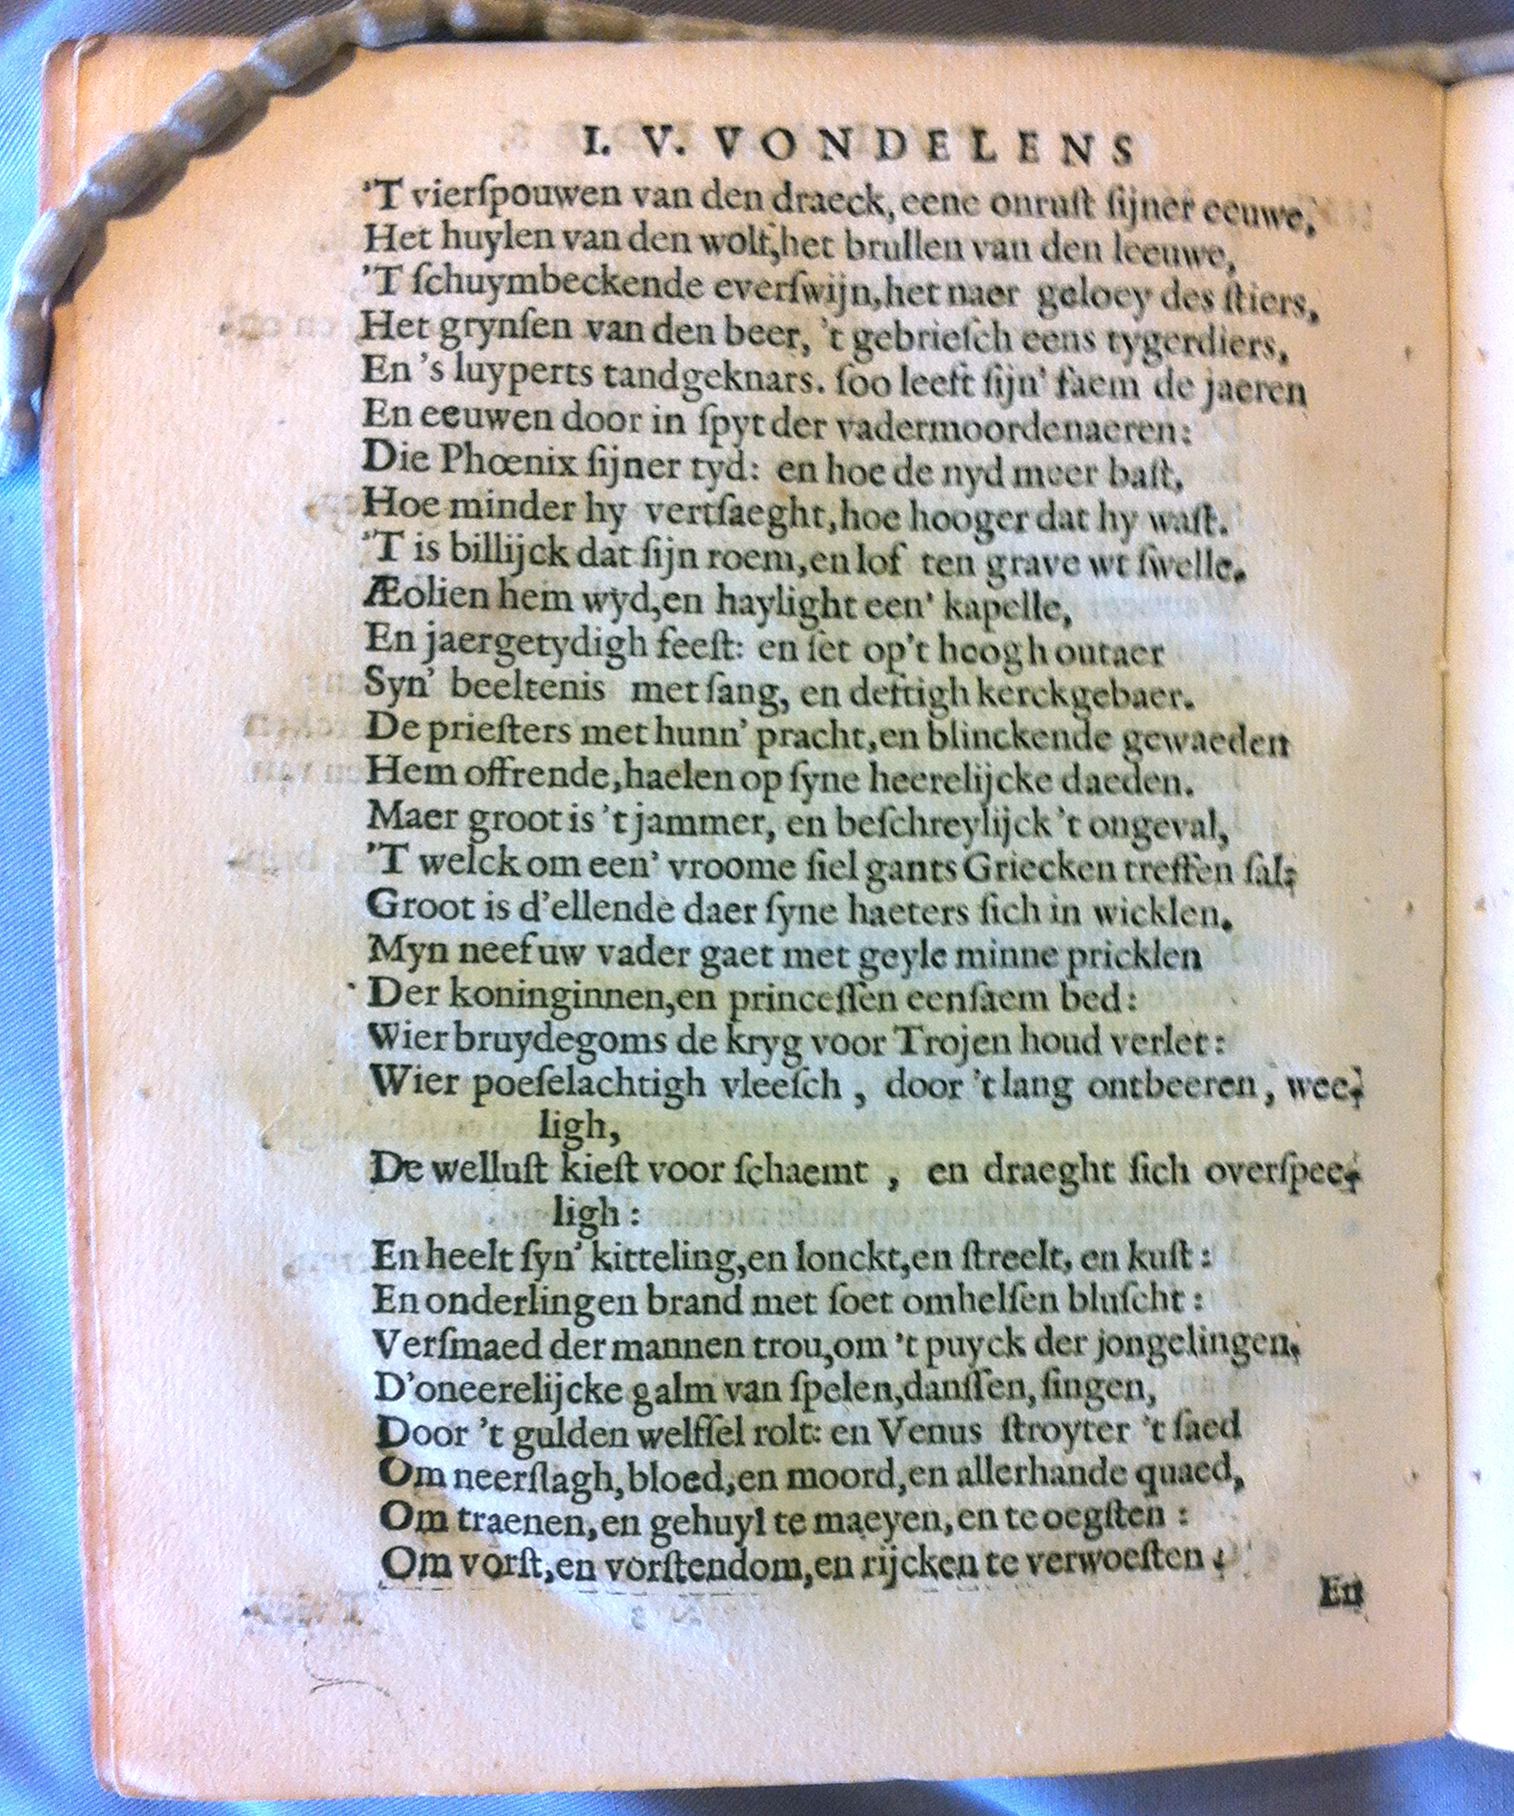 I. V. VONDELENS
'T vierſpouwen van den draeck, eene onruſt ſijner eeuwe,
Het huylen van den wolf, het brullen van den leeuwe,
'T ſchuymbeckende everſwijn, het naer geloey des ſtiers,
Het grynſen van den beer, 't gebrieſch eens tygerdiers,
En 's luyperts tandgeknars. ſoo leeft ſijn' faem de jaeren
En eeuwen door in ſpyt der vadermoordenaeren:
Die Phœnix ſijner tyd: en hoe de nyd meer baſt,
Hoe minder hy vertſaeght, hoe hooger dat hy waſt.
'T is billijck dat ſijn roem, en lof ten grave wt ſwelle.
Æolien hem wyd, en haylight een' kapelle,
En jaergetydigh feeſt: en ſet op't hoogh outaer
Syn' beeltenis met ſang, en deftigh kerckgebaer.
De prieſters met hunn' pracht, en blinckende gewaeden
Hem offrende, haelen op ſyne heerelijcke daeden.
Maer groot is 't jammer, en beſchreylijck 't ongeval,
'T welck om een' vroome ſiel gants Griecken treffen ſal;
Groot is d'ellende daer ſyne haeters ſich in wicklen.
Myn neef uw vader gaet met geyle minne pricklen
Der koninginnen, en princeſſen eenſaem bed:
Wier bruydegoms de kryg voor Trojen houd verlet:
Wier poeſelachtigh vleeſch, door 't lang ontbeeren, wee-
ligh,
De welluſt kieſt voor ſchaemt, en draeght ſich overſpee-
ligh:
En heelt ſyn' kitteling, en lonckt, en ſtreelt, en kuſt:
En onderlingen brand met ſoet omhelſen bluſcht:
Verſmaed der mannen trou, om 't puyck der jongelingen,
D'oneerelijcke galm van ſpelen, danſſen, ſingen,
Door 't gulden welfſel rolt: en Venus ſtroyter 't ſaed
Om neerſlagh, bloed, en moord, en allerhande quaed,
Om traenen, en gehuyl te maeyen, en te oegſten:
Om vorſt, en vorſtendom, en rijcken te verwoeſten:
En